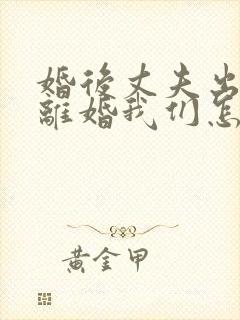 婚後丈夫出
離婚我们怎
黄金甲